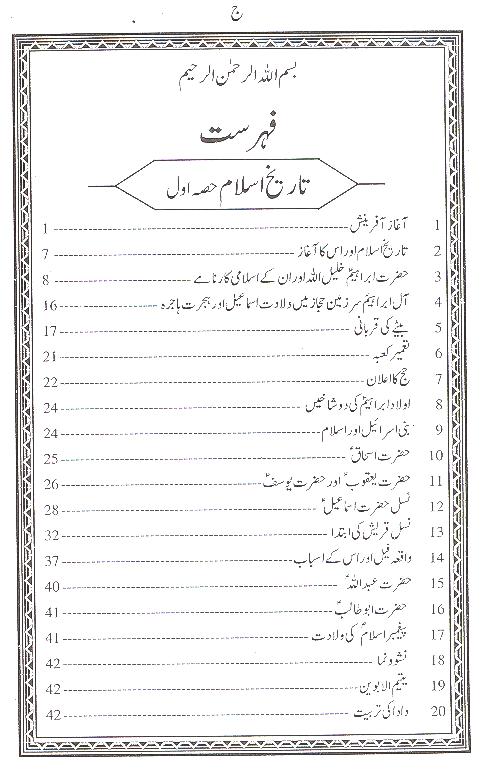 ج
بسم اللہ الرحمٰن الرحیم
فہرست
تاریخ اسلام حصہ اول
1 آغاز آفرینش 1
2 تاریخ اسلام اور اس کا آغاز 7
3 حضرت ابراہیمؑ خلیل اللہ اور ان کے اسلامی کارنامے 8
4 آل ابراہیمؑ سرزمین حجاز میں ولادت اسماعیل اور ہجرت ہاجرہ 16
5 بیٹے کی قربانی 17
6 تعمیر کعبہ 21
7 حج کا اعلان 22
8 اولاد ابراہیمؑ کی دو شاخیں 24
9 بنی اسرائیل اور اسلام 24
10 حضرت اسحاقؑ 25
11 حضرت یعقوبؑ اور حضرت یوسفؑ 26
12 نسل حضرت اسماعیلؑ 28
13 نسل قریش کی ابتدا 32
14 واقعہ فیل اور اس کے اسباب 37
15 حضرت عبداللہؑ 40
16 حضرت ابو طالبؑ 41
17 پیغمبر اسلامؐ کی ولادت 41
18 نشوونما 42
19 یتیم الابوین 42
20 دادا کی تربیت 42